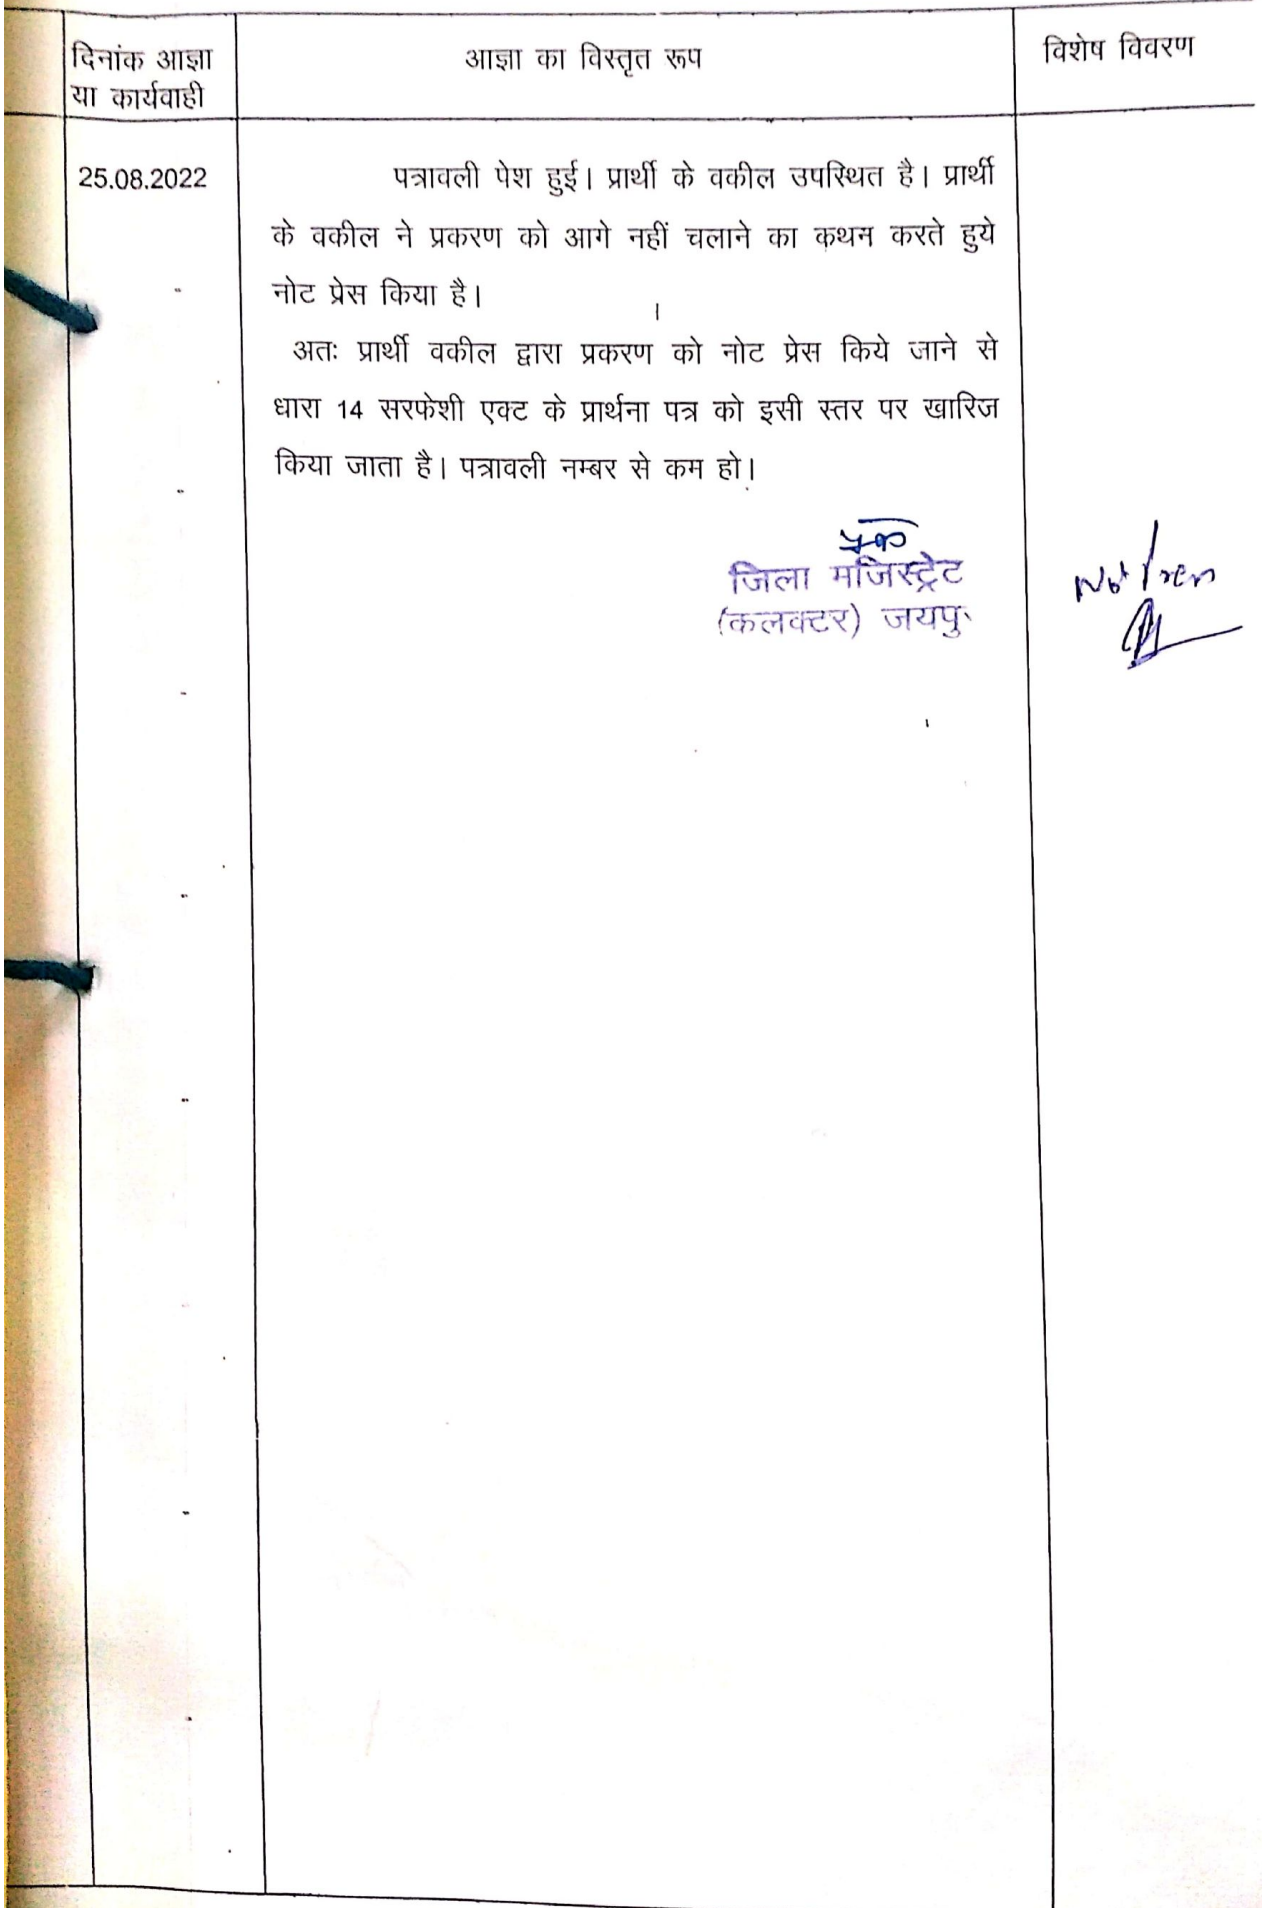 दिनांक आज्ञा
या कार्यवाही
आज्ञा का विस्तृत रूप
विशेष विवरण
25.08.2022
पत्रावली पेश हुई। प्रार्थी के वकील उपस्थित है। प्रार्थी
के वकील ने प्रकरण को आगे नहीं चलाने का कथन करते हुये
नोट प्रेस किया है।
अतः प्रार्थी वकील द्वारा प्रकरण को नोट प्रेस किये जाने से
धारा 14 सरफेशी एक्ट के प्रार्थना पत्र को इसी स्तर पर खारिज
किया जाता है। पत्रावली नम्बर से कम हो।
जिला मजिस्ट्रेट
(कलक्टर) जयपु
Not